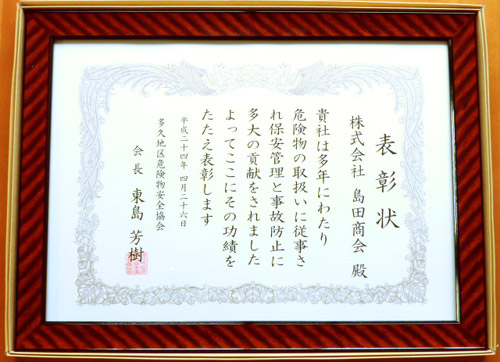 表彰状
株式会社 島田商会 殿
貴社は多年にわたり
危険物の取扱いに従事さ
れ保安管理と事故防止に
多大の貢献をされました
よってここにその功績を
たたえ表彰します
平成二十四年 四月二十六日
多久地区危険物安全協会
会長 東島 芳樹